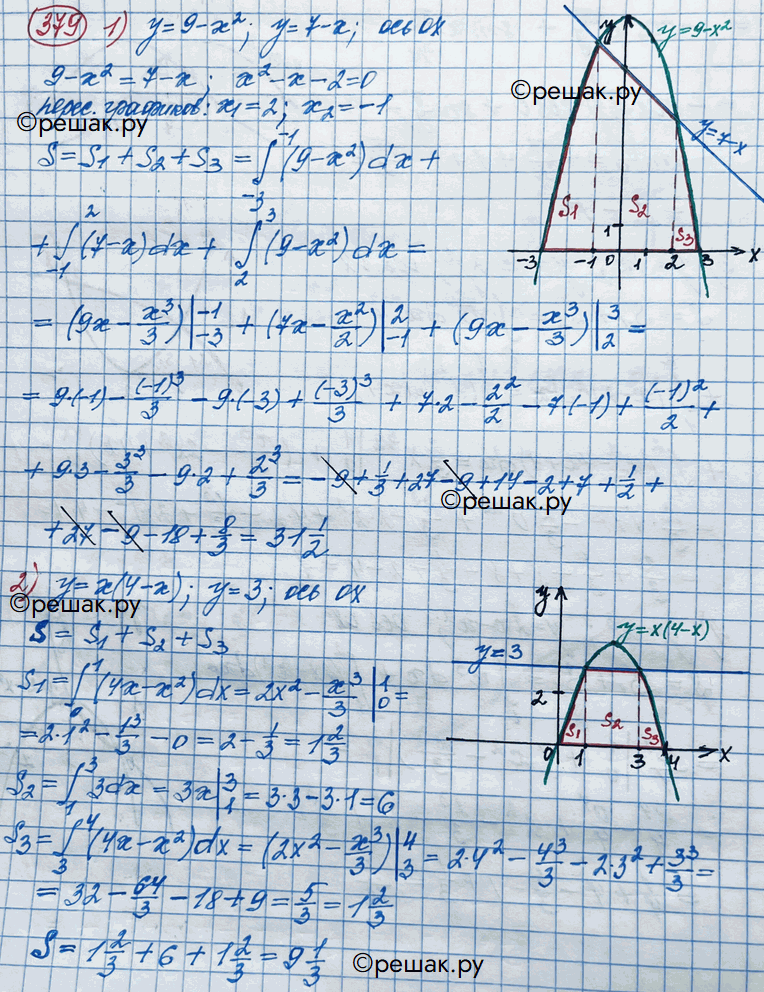 379 1) y=9-x²; y=7-x; ось ox
9-x²=7-x; x²-x-2=0
перес. графиков: x₁=2; x₂=-1
©решак.ру
S=S₁+S₂+S₃=∫₋₃⁻¹(9-x²)dx+
+∫₋₁²(7-x)dx+∫₂³(9-x²)dx=
=(9x-x³/3)|₋₃⁻¹+(7x-x²/2)|₋₁²+(9x-x³/3)|₂³=
=9·(-1)-(-1)³/3-9·(-3)+(-3)³/3+7·2-2²/2-7(-1)+(-1)²/2+
+9·3-3³/3-9·2+2³/3=-9+1/3+27-9+14-2+7+1/2+
©решак.ру
+27-9-18+8/3=31 1/2
y
y=9-x²
©решак.ру
y=7-x
S₁ S₂ S₃
1
-3 -1 0 1 2 3 x
2) y=x(4-x); y=3; ось ox
©решак.ру
S=S₁+S₂+S₃
S₁=∫₀¹(4x-x²)dx=2x²-x³/3|₀¹=
=2·1²-1³/3-0=2-1/3=1 2/3
S₂=∫₁³3dx=3x|₁³=3·3-3·1=6
S₃=∫₃⁴(4x-x²)dx=(2x²-x³/3)|₃⁴=2·4²-4³/3-2·3²+3³/3=
=32-64/3-18+9=5/3=1 2/3
S=1 2/3+6+1 2/3=9 1/3
©решак.ру
y
y=x(4-x)
y=3
2
S₁ S₂ S₃
0 1 3 4 x